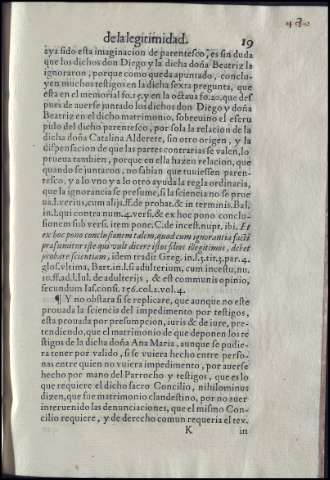 de la legitimidad.
19
aya sido esta imaginacion de parentesco, es sin duda
que los dichos don Diego y la dicha doña Beatriz la
ignoraron, porque como queda apuntado, conclu-
yen muchos testigos en la dicha sexta pregunta, que
esta en el memorial fo. 15. y en la octaua fo. 20. que des
pues de auerse juntado los dichos don Diego y doña
Beatriz en el dicho matrimonio, sobreuino el escru
pulo del dicho parentesco, por sola la relacion de la
dicha doña Catalina Alderete, sin otro origen, y la
dispensacion de que las partes contrarias se valen, lo
prueua tambien, porque en ella hazen relacion, que
quando se juntaron, no sabian que tuuiessen paren-
tesco, y a lo vno y a lo otro ayuda la regla ordinaria,
que la ignorancia se presume, si la sciencia no se prue
ua, l. verius, cum alijs. ff. de probat. & in terminis, Bal.
in l. qui contra num. 4. vers. & ex hoc pono conclu-
sionem sub versi. item pone. C. de incest. nupt. ibi. Et
ex hoc pono conclusionem talem, quod cum ignorantia facti
præsumatur iste qui vult dicere istos filios illegitimos, debet
probare scientiam, idem tradit Greg. in l. 3. tit. 3. par. 4.
glos. vltima, Bart. in l. si adulterium, cum incestu, nu.
10. ff. ad l. Iul. de adulterijs, & est communis opinio,
secundum Ias. cons. 156. col. 2. vol. 4.
¶ Y no obstara si se replicare, que aunque no este
prouada la sciencia del impedimento por testigos,
esta prouada por presumpcion, iuris & de iure, pre-
tendiendo, que el matrimonio de que deponen los te
stigos de la dicha doña Ana Maria, aunque se pudie-
ra tener por valido, si se vuiera hecho entre perso-
nas entre quien no vuiera impedimento, por auerse
hecho por mano del Parrocho y testigos, que es lo
que requiere el dicho sacro Concilio, nihilominus
dizen, que fue matrimonio clandestino, por no auer
interuenido las denunciaciones, que el mismo Con-
cilio requiere, y de derecho comun requeria el tex.
K
in